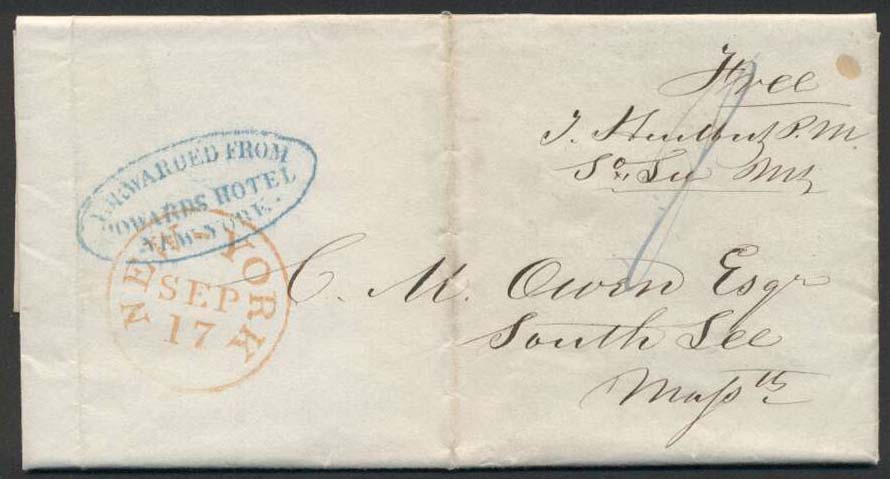 Free
J. Hurlbut P.M.
So. Lee Ms
FORWARDED FROM
HOWARDS HOTEL
NEW-YORK.
NEW-YORK
SEP
17
C. M. Owen Esqr
South Lee
Massts